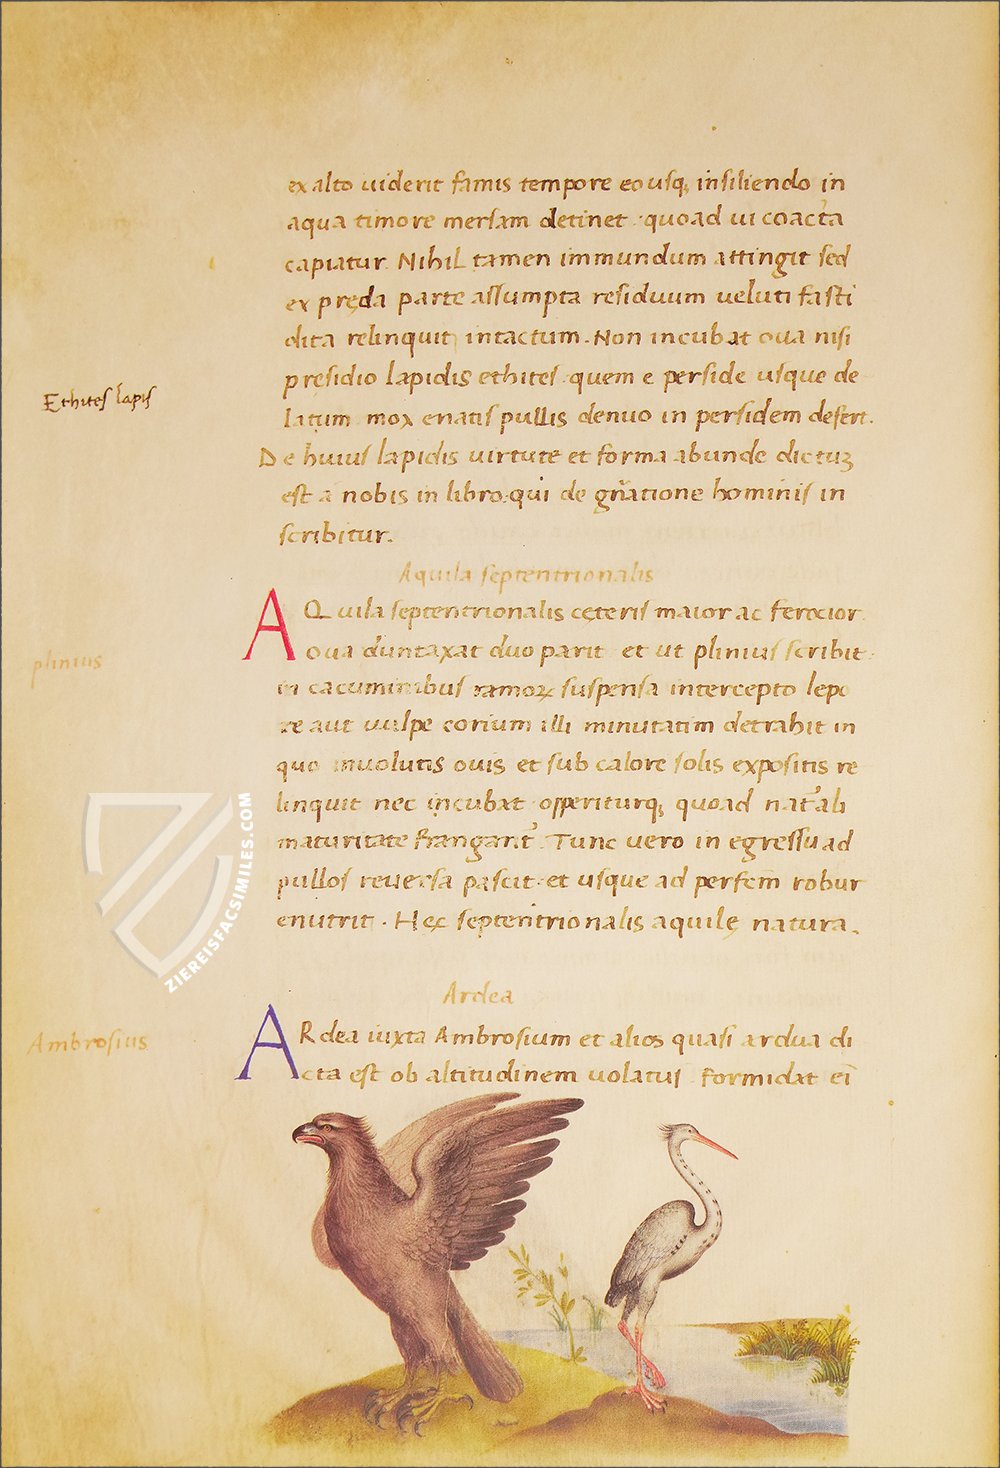 ex alto uiderit famis tempore eousq; insiliendo in
aqua timore mersam detinet · quoad ui coacta
capiatur Nihil tamen immundum attingit sed
ex pręda parte assumpta residuum ueluti fasti
dita relinquit intactum. Non incubat oua nisi
presidio lapidis ethites · quem e perside usque de
Ethites lapis
latum mox enatis pullis denuo in persidem defert.
De huius lapidis uirtute et forma abunde dictuʒ
est a nobis in libro · qui de gñatione hominis in
scribitur.
Aquila septentrionalis
AQuila septentrionalis cęteris maior ac ferocior
oua duntaxat duo parit et ut plinius scribit
plinius
in cacuminibus ramoꝝ suspensa intercepto lepo
re aut uulpe corium illi minutatim detrahit in
quo inuolutis ouis et sub calore solis expositis re
linquit nec incubat · opperiturq; quoad nat̃ali
maturitate frangant̃. Tunc uero in egressu ad
pullos reuersa pascit · et usque ad perfem robur
enutrit · Hęc septentrionalis aquilę natura.
Ardea
ARdea iuxta Ambrosium et alios quasi ardua di
Ambrosius
cta est ob altitudinem uolatus formidat ei
ZIEREISFACSIMILES.COM